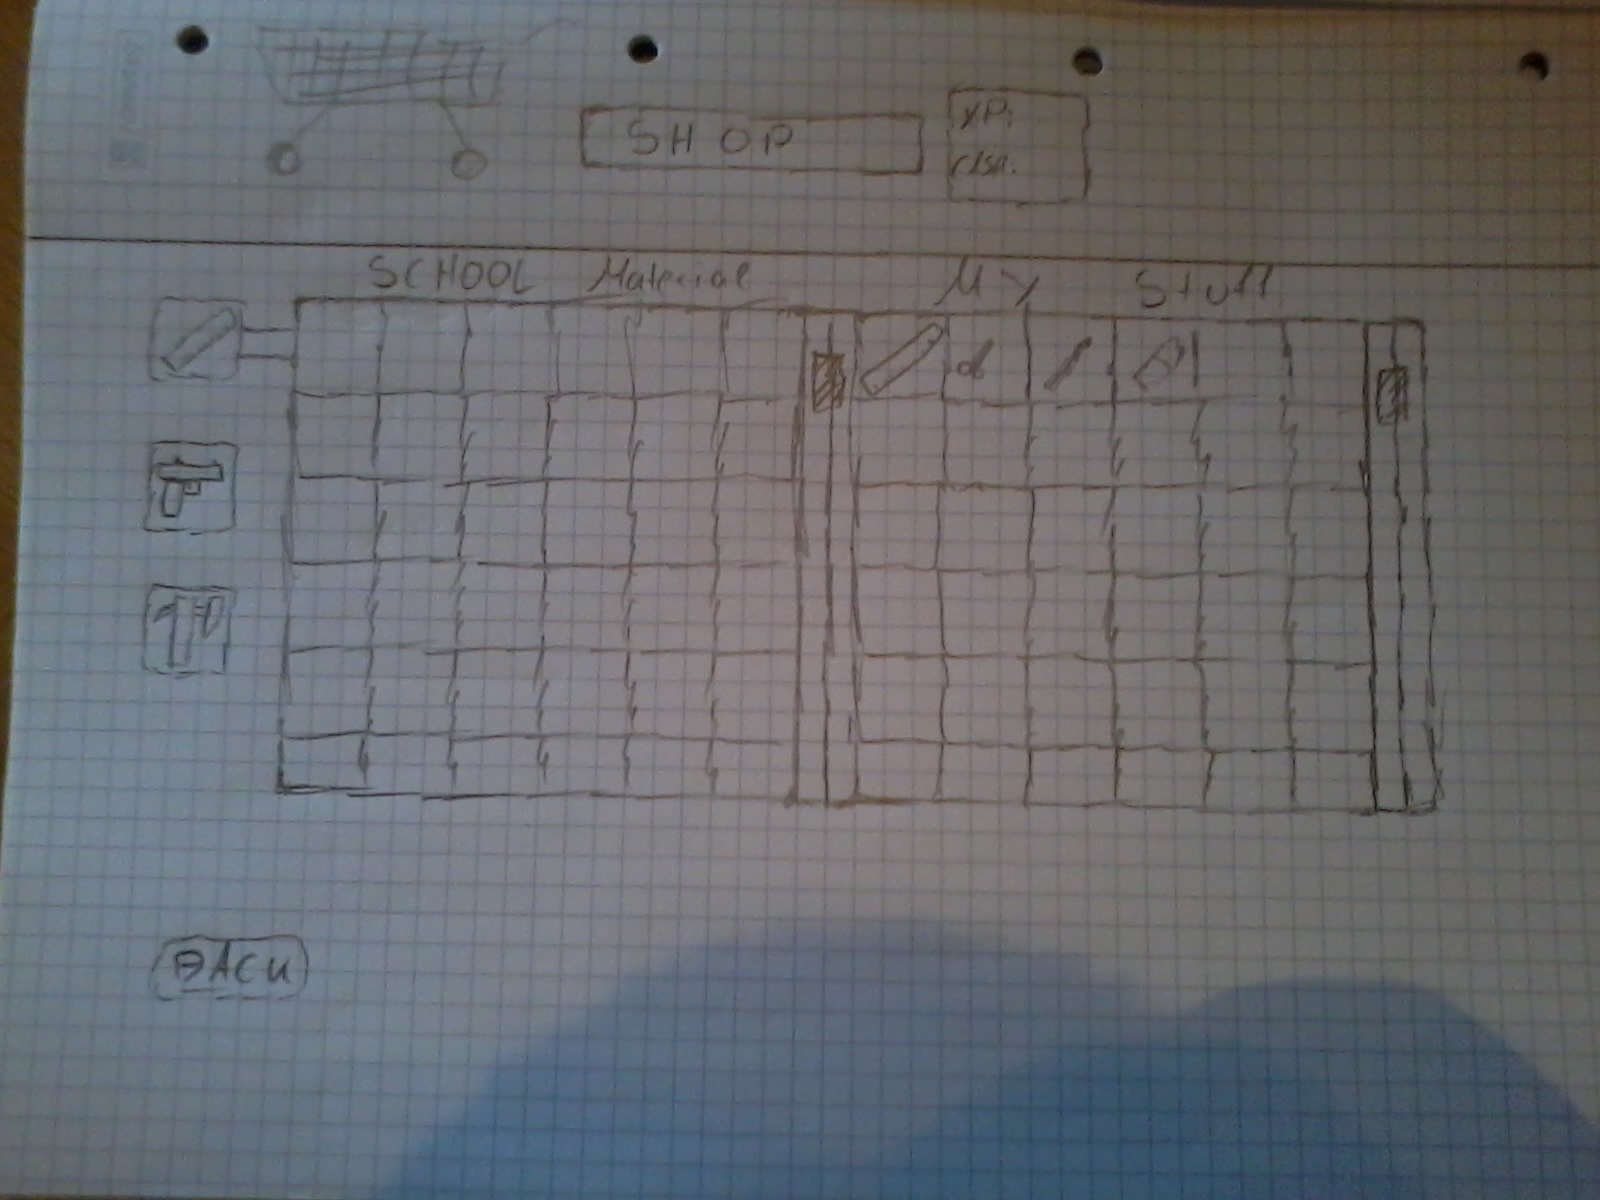 SHOP
XP:
SCHOOL Material
My Stuff
BACK